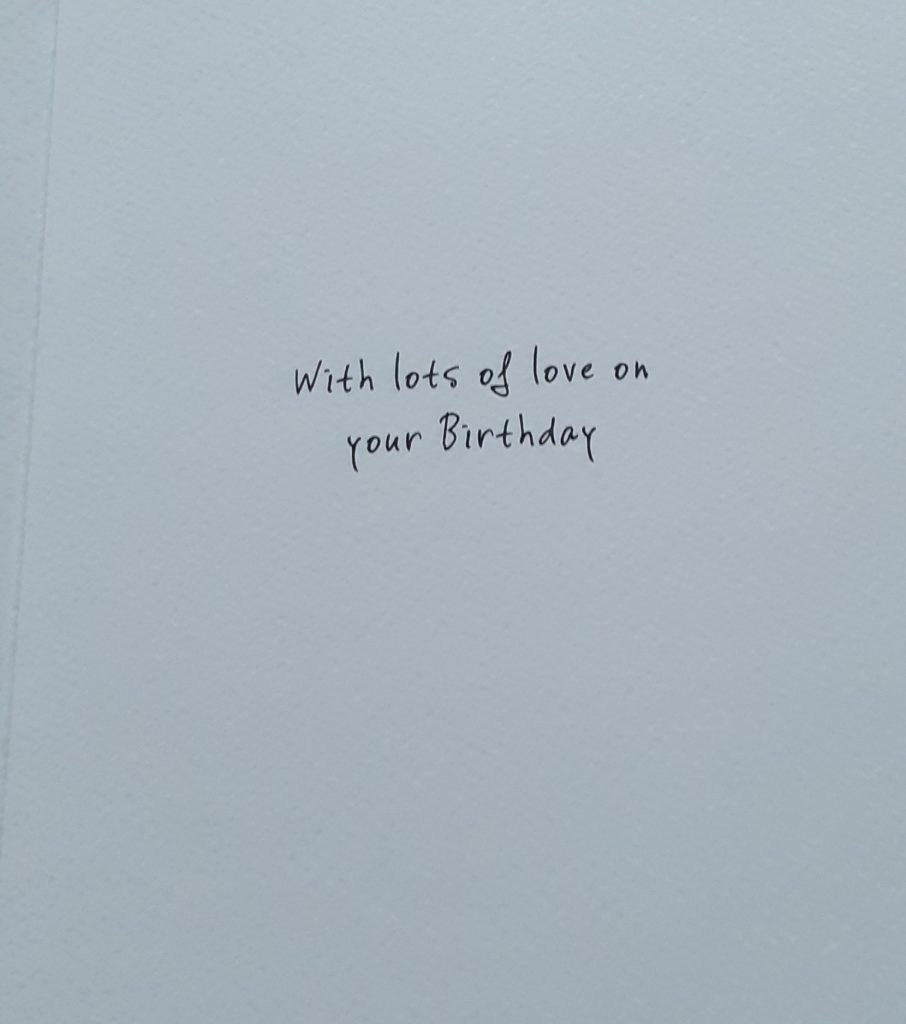 With lots of love on
your Birthday